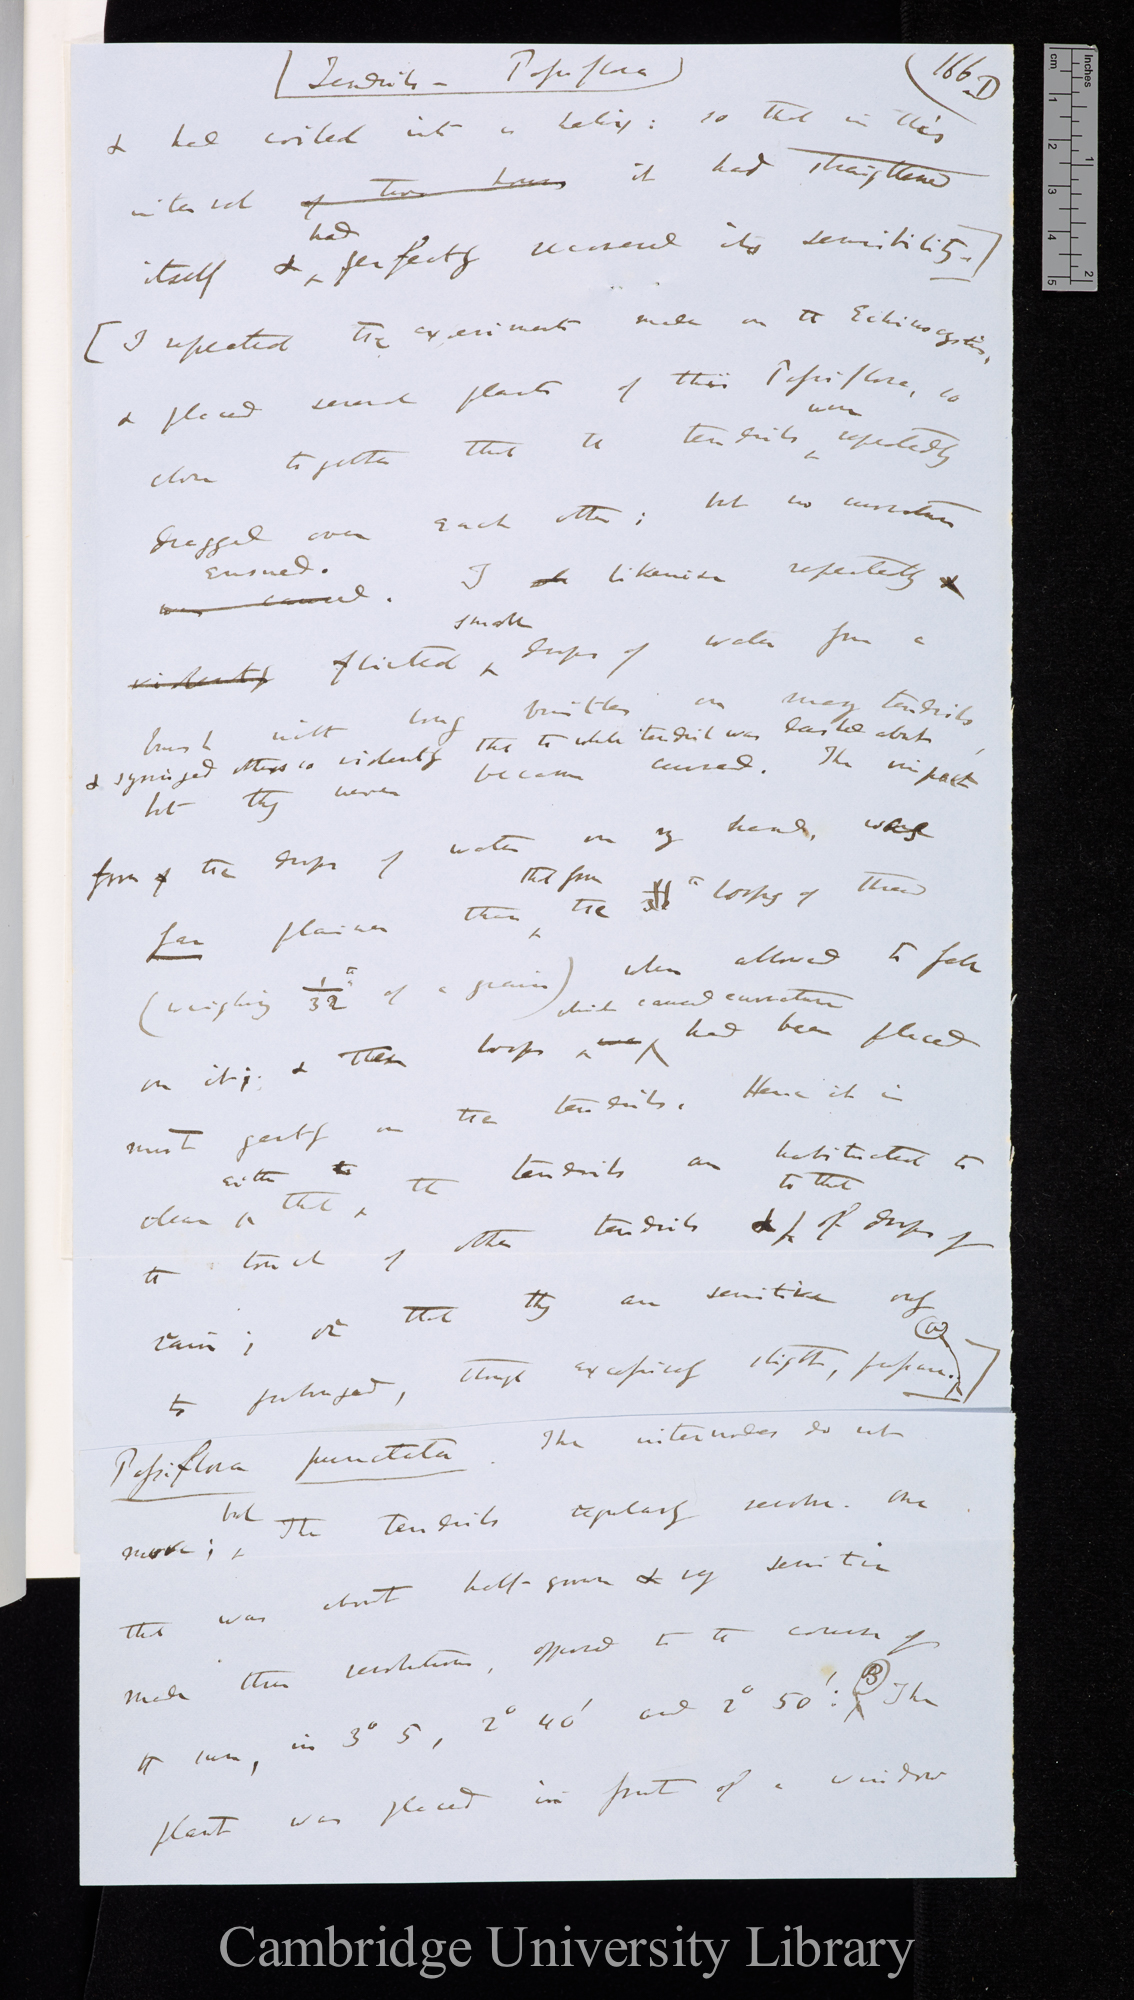 (Tendrils – Passiflora)
166 D
& had coiled into a helix: so that in this
interval of two hours it had straightened
had
itself & perfectly recovered its sensitivity.]
[I repeated the experiments made on the Echinocystis,
& placed several plants of this Passiflora, so
were
close together that the tendrils repeatedly
dragged over each other; but no curvature
ensued.
was caused. I likewise repeatedly
small
violently flirted drops of water from a
brush with long bristles on many tendrils,
& syringed others so violently that the whole tendril was dashed about
but they never became curved. The impact
from the drops of water on my hand, was
that from
far plainer than the loops of thread
(weighing 1/32 of a grain) when allowed to fall
which caused curvature
on it; & these loops had been placed
most gently on the tendrils. Hence it is
either
clear that the tendrils are habituated to
to that
the touch of other tendrils & of drops of
rain; or that they are sensitive only
(A)
to prolonged, though excessively slight, pressure.]
Passiflora punctata. The internodes do not
but
move; The tendrils regularly revolve. One
that was about half-grown & very sensitive
made three revolutions, opposed to the course of
the sun, in 3° 5, 2° 40' and 2° 50': (B) The
plant was placed in front of a window
cm
1
2
3
4
5
Inches
1
2
Cambridge University Library